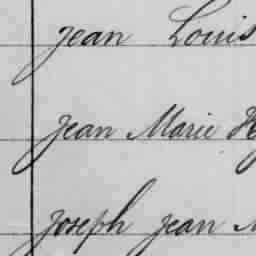 Jean Louis
Jean Marie
Joseph Jean